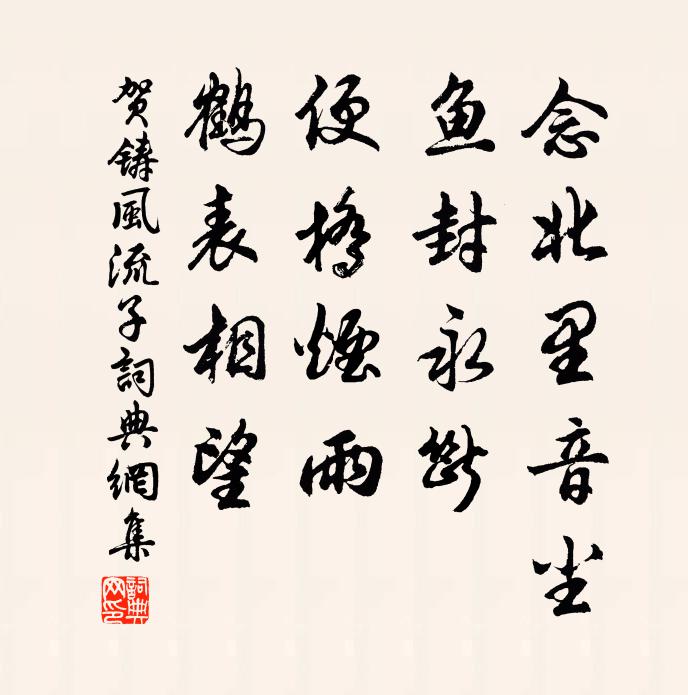 念北里音尘
鱼封永断
便橋煙雨
鶴表相望
贺鑄風流子詞典網集
詞典网印